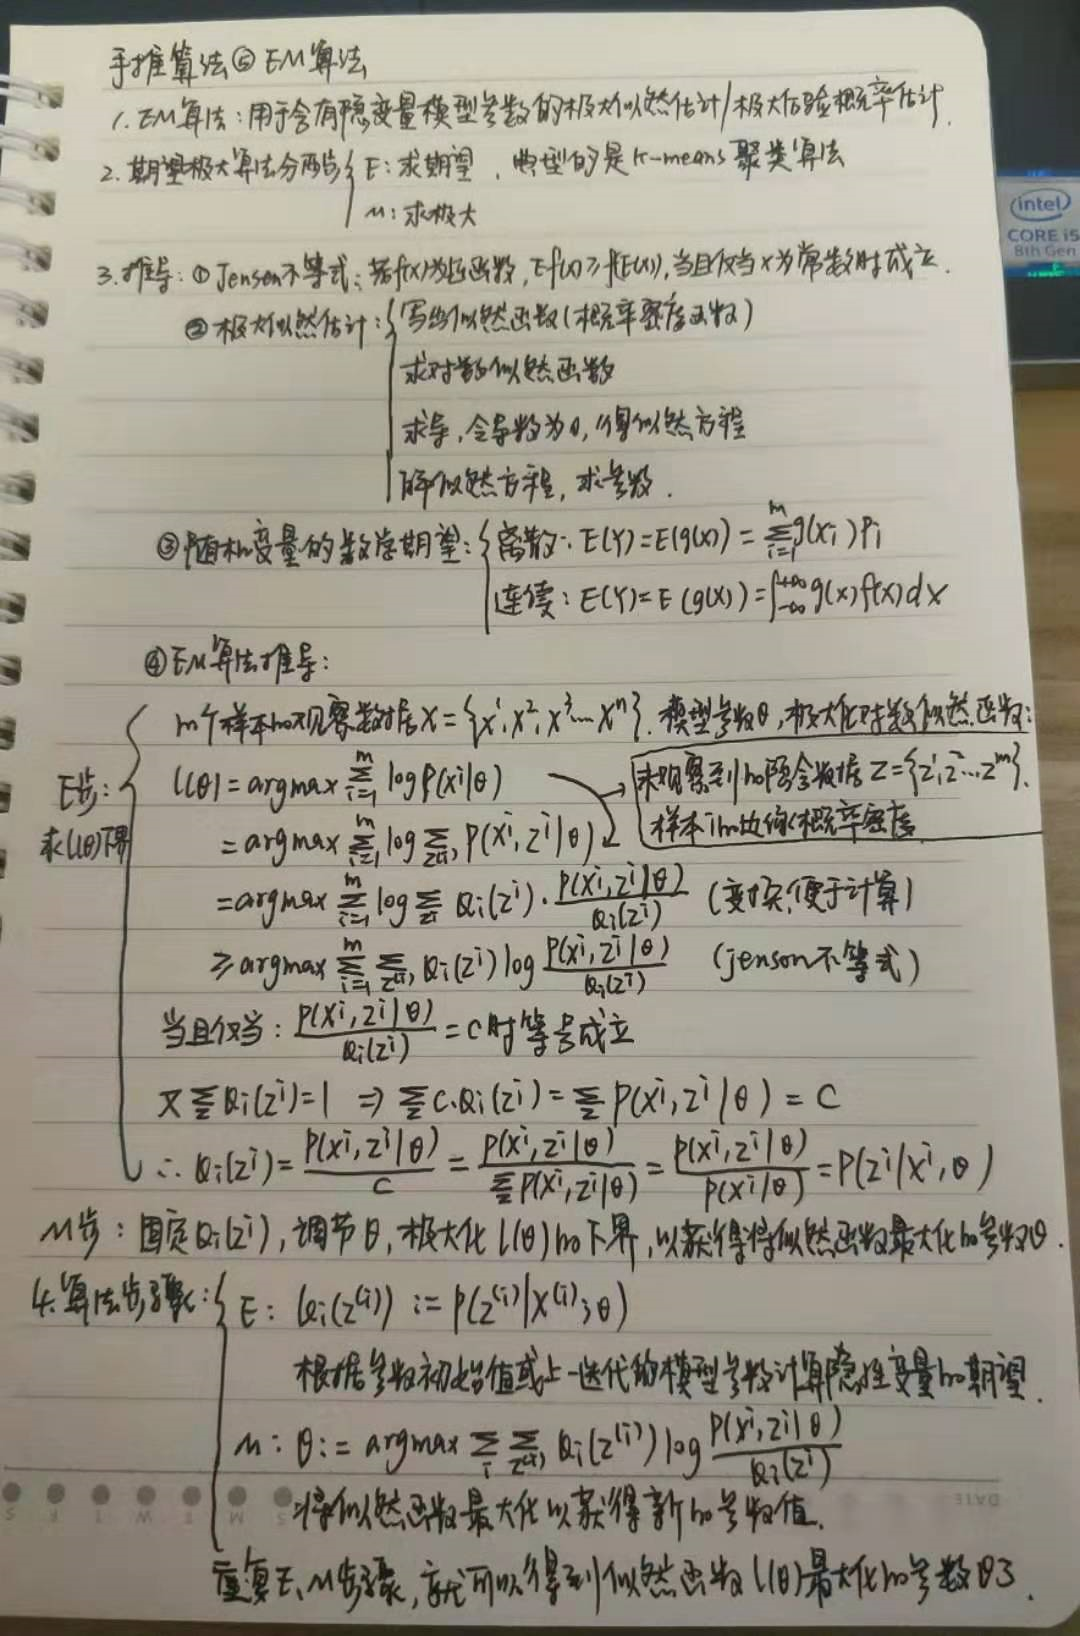 手推算法⑤ EM算法
1. EM算法：用于含有隐变量模型参数的极大似然估计/极大后验概率估计.
2. 期望极大算法分两步 { E：求期望，典型的是K-means聚类算法
M：求极大
3. 推导：① Jensen不等式：若f(x)为凸函数，Ef(x)≥f(E(x))，当且仅当x为常数时成立.
② 极大似然估计：{ 写出似然函数(概率密度函数)
求对数似然函数
求导，令导数为0，得似然方程
解似然方程，求参数.
③ 随机变量的数学期望：{ 离散：E(Y)=E(g(x)) = ∑_{i=1}^{m} g(xi)Pi
连续：E(Y)=E(g(x))=∫_{-∞}^{+∞} g(x)f(x)dx
④ EM算法推导：
m个样本的观察数据X={x¹,x²,x³…xⁿ}. 模型参数θ，极大化对数似然函数：
l(θ) = argmax ∑_{i=1}^{m} log P(xⁱ|θ)
未观察到的隐含数据Z={z¹,z²…z^m}.
样本i的
概率密度
E步：求l(θ)下界
= argmax ∑_{i=1}^{m} log ∑_{z(i)} P(xⁱ,zⁱ|θ)
= argmax ∑_{i=1}^{m} log ∑_{zⁱ} Qi(zⁱ)·P(xⁱ,zⁱ|θ)/Qi(zⁱ) (变换，便于计算)
≥ argmax ∑_{i=1}^{m} ∑_{z(i)} Qi(zⁱ) log P(xⁱ,zⁱ|θ)/Qi(zⁱ) (jenson不等式)
当且仅当：P(xⁱ,zⁱ|θ)/Qi(zⁱ) = C时等号成立
又∑_z Qi(zⁱ)=1 ⇒ ∑_z C.Qi(zⁱ) = ∑_z P(xⁱ,zⁱ|θ) = C
∴ Qi(zⁱ) = P(xⁱ,zⁱ|θ)/C = P(xⁱ,zⁱ|θ)/∑_z P(xⁱ,zⁱ|θ) = P(xⁱ,zⁱ|θ)/P(xⁱ|θ) = P(zⁱ|xⁱ,θ)
M步：固定Qi(zⁱ)，调节θ，极大化l(θ)的下界，以获得将似然函数最大化的参数θ.
4. 算法步骤：{ E：Qi(z⁽ⁱ⁾) := P(z⁽ⁱ⁾|x⁽ⁱ⁾;θ)
根据参数初始值或上一迭代的模型参数计算隐性变量的期望.
M：θ := argmax ∑_i ∑_{z(i)} Qi(z⁽ⁱ⁾) log P(xⁱ,zⁱ|θ)/Qi(zⁱ)
将似然函数最大化以获得新的参数值.
重复E、M步骤，就可以得到似然函数l(θ)最大化的参数θ了.
intel
CORE i5
8th Gen